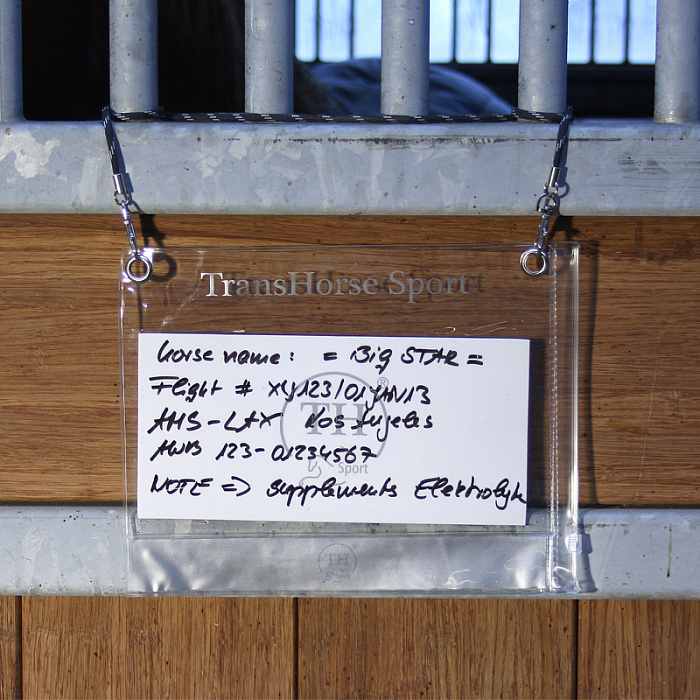 TransHorse Sport
horse name: = Big STAR =
Flight # XY123/01JAN13
AMS-LAX Los Angeles
AWB 123-01234567
NOTE => supplements Elektrolyte
TH
®
Sport
TH